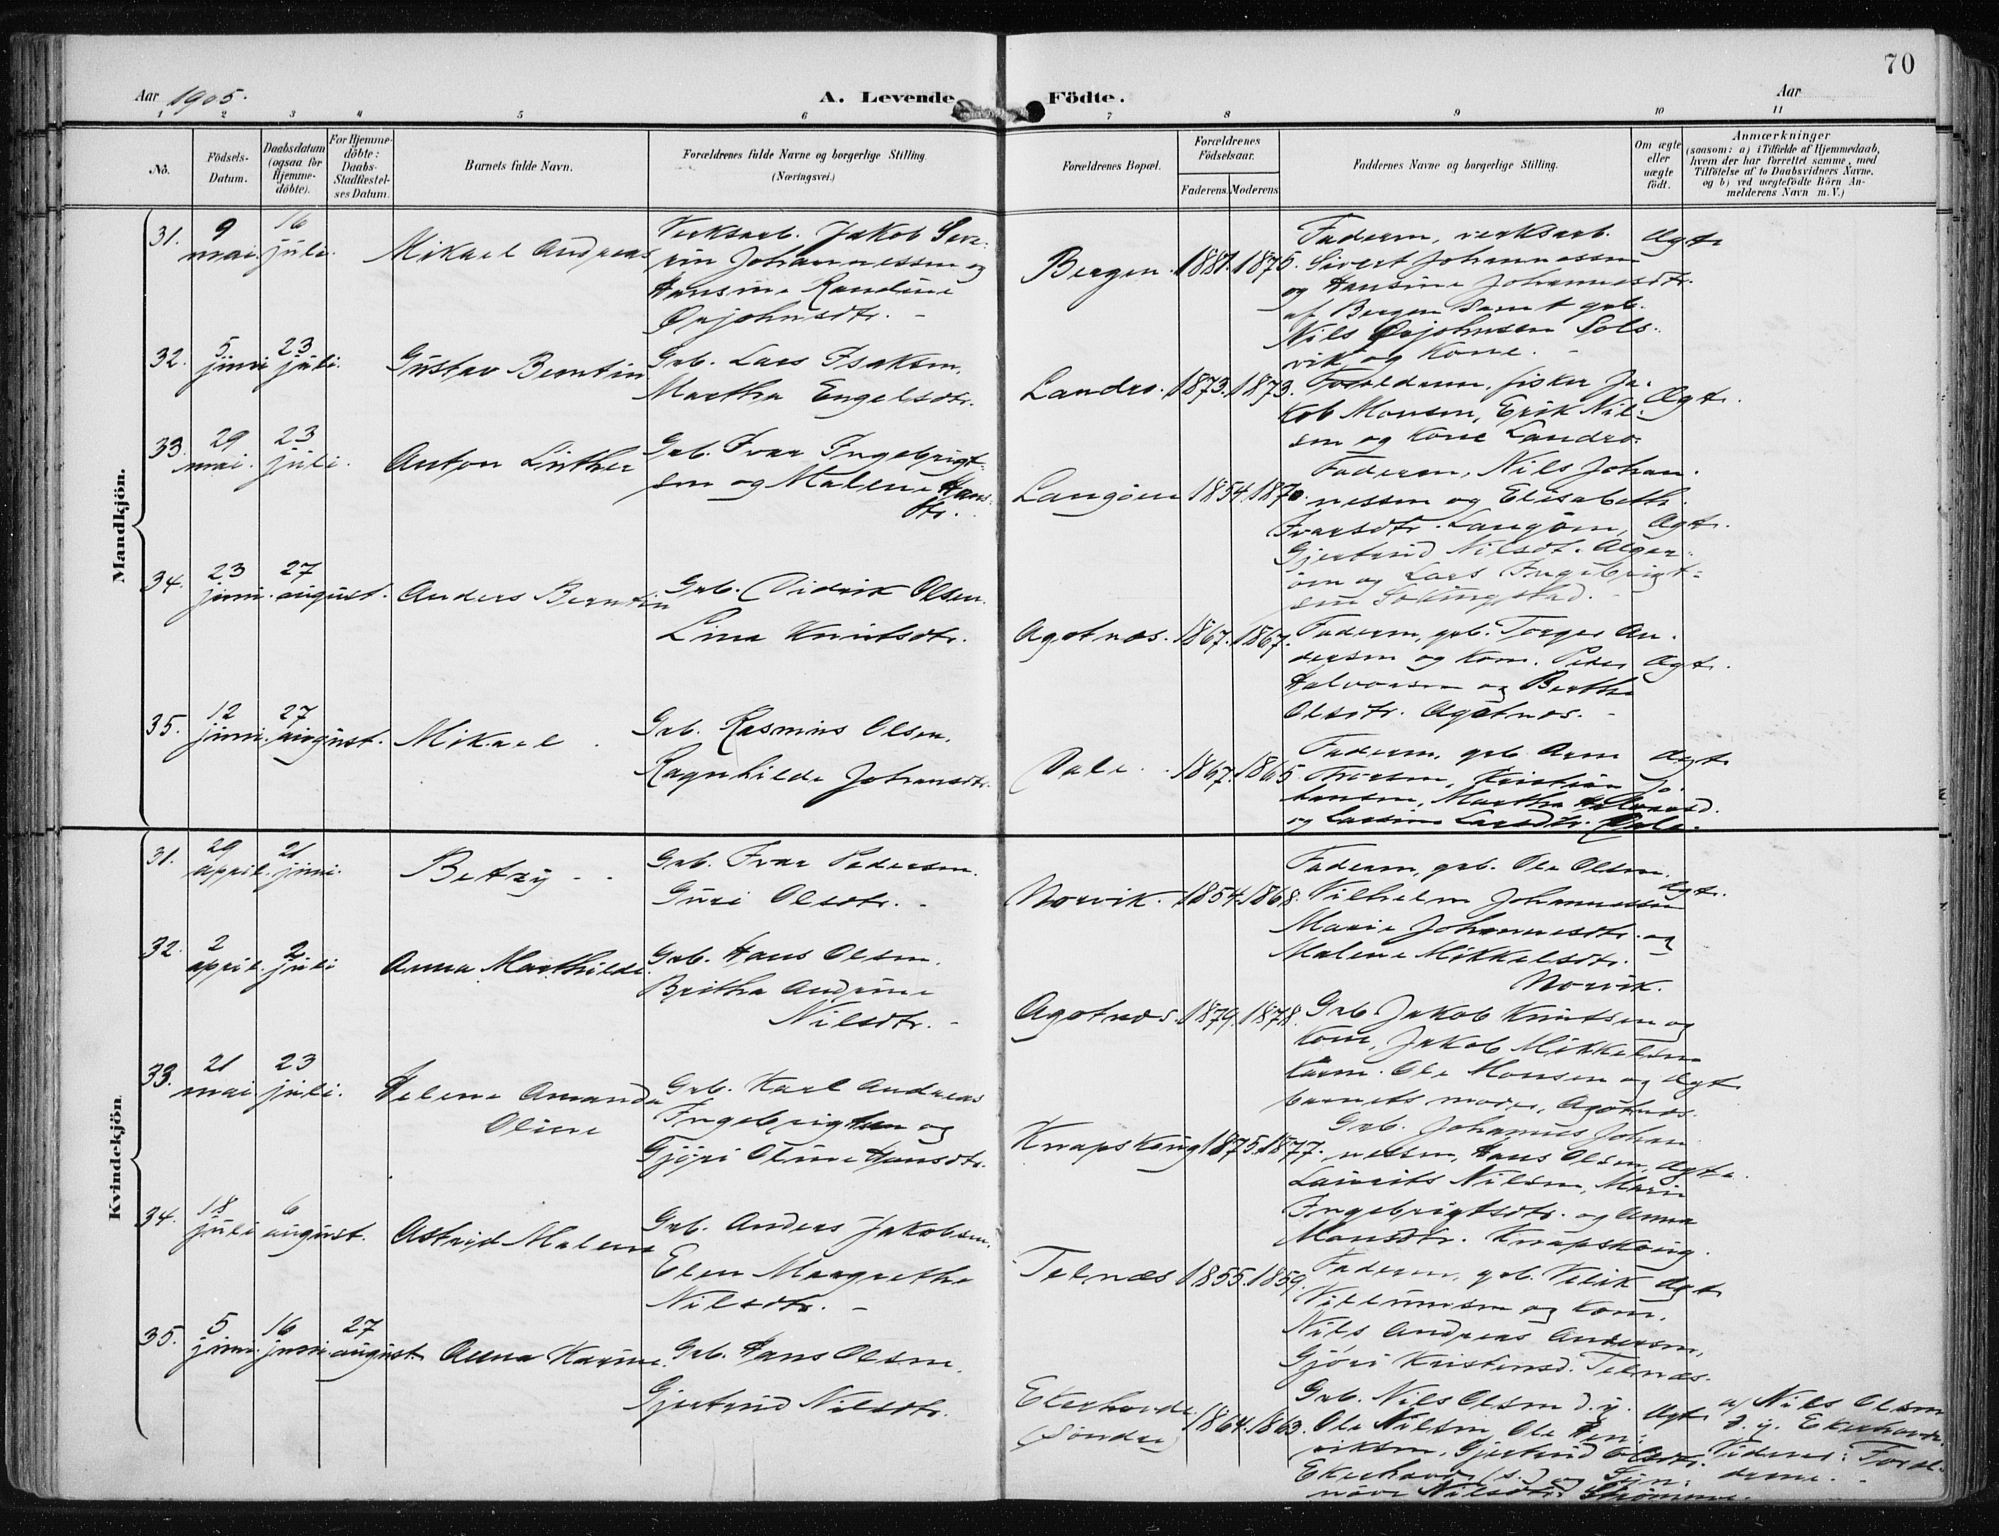 70
Aar 1905.
A. Levende Födte.
Aar
1 2 3 4 5 6 7 8 9 10 11
No.
Födsels-Datum.
Daabsdatum (ogsaa for Hjemme-döbte).
For Hjemme-döbte: Daabs-Stadfæstel-ses Datum.
Barnets fulde Navn.
Forældrenes fulde Navne og borgerlige Stilling (Næringsvei.)
Forældrenes Bopæl.
Forældrenes Födselsaar.
Faderens. Moderens.
Faddernes Navne og borgerlige Stilling.
Om ægte eller uægte födt.
Anmærkninger
(saasom: a) i Tilfælde af Hjemmedaab,
hvem der har forrettet samme, med
Tilföielse af to Daabsvidners Navne,
og b) ved uægtefödte Börn An-
melderens Navn m. V.)
Mandkjön.
31. 9 mai. 16 juli. Mikael Andreas
Verksarb. Jakob Seve-
rin Johannessen og
Hansine Randine
Ørjohnsdtr. -
Bergen. 1881. 1875.
Faderen, verksarb.
Sivert Johannessen
og Hansine Johannesdtr.
af Bergen samt grb.
Nils Ørjohnsen Sols-
vik og Kone. -
Ægte
32. 5 juni 23 juli. Gustav Berntin
Grb. Lars Isaksen.
Martha Engelsdtr.
Landro. 1873. 1873.
Forældrene, fisker Ja-
kob Monsen, Erik Nil-
sen og Kone Landro.
Ægte.
33. 29 mai. 23 juli. Anton Luther
Grb. Ivar Ingebrigt-
sen og Malene Hans-
dtr.
Langøen 1854. 1870.
Faderen, Nils Johan-
nessen og Elisabeth
Ivarsdtr. Langøen,
Gjertrud Nilsdt. Alger-
øen og Lars Ingebrigt-
sen
Ægte.
34. 23 juni. 27 august. Anders Berntin
Grb. Didrik Olsen.
Lina Knutsdtr.
Agotnæs. 1867. 1867.
Faderen, grb. Torger An-
dersen og Kone. Peder
Halvorsen og Berthe
Olsdtr. Agotnæs. -
Ægte.
35. 12 juni. 27 august. Mikael.
Grb. Rasmus Olsen.
Ragnhilde Johannsdtr.
Dale. 1867. 1865
Faderen, grb. Arne
Iversen, Kristian Jo-
hansen, Martha Halvorsd.
og Larsine Larsdtr. Dale.
Ægte
Kvindekjön
31. 29 april. 21 juni. Betzy - -
Grb. Ivar Pedersen.
Guri Olsdtr. -
Norvik. 1854. 1868.
Faderen, grb. Ole Olsen.
Vilhelm Johannessen
Marie Johannesdtr. og
Malene Mikkelsdtr.
Norvik.
Ægte.
32. 2 april. 2 juli Anna Marthilde
Grb. Hans Olsen.
Britha Andrine
Nilsdtr. -
Agotnæs. 1879. 1878.
Grb. Jakob Knutsen og
Kone, Jakob Mikkelsen
Ole Monsen og
barnets moder, Agotnæs.
Ægte
33. 21 mai 23 juli. Helene Amanda
Oline
Grb. Karl Andreas
Ingebrigtsen og
Gjøri Oline Hansdtr.
Knapskoug 1875. 1877.
Grb. Johannes Johan-
nessen, Hans Olsen,
Laurits Nilsen, Marie
Ingebrigtsdtr. og Anna
Monsdtr. Knapskoug.
Ægte
34. 18 juli 6 august. Astrid Malene
Grb. Anders Jakobsen.
Elen Margrethe
Nilsdtr. -
Telnæs 1855. 1859.
Faderen, grb. Villik
Villumsen og Kone.
Nils Andreas Andersen,
Gjøri Kristensd. Telnæs.
Ægte
35. 5 juni. 16 juni 27 august. Anna Karine.
Grb. Hans Olsen.
Gjertrud Nilsdtr.
Ekerhovde. (Søndre) 1864. 1863.
Grb. Nils Olsen d. y.
Ole Nilsen, Ole Hen-
riksen, Gjertrud Olsdtr.
Ekerhovde (s.) og Syn-
nøve Nilsdtr. Strømme.
Ægte
a/ Nils Olsen
d. y. Ekerhovde.
Vidner: Foræl-
drene. -